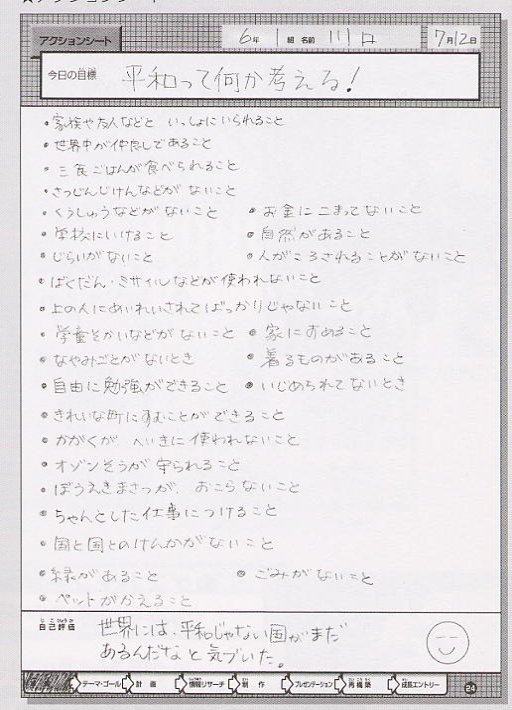 アクションシート
6年 1組 名前 川口 7月12日
今日の目標 平和って何か考える!
・家族や友人などと いっしょにいられること
・世界中が仲良しであること
・三食ごはんが食べられること
・さつじんじけんなどが ないこと
・くうしゅうなどが ないこと ・お金にこまってないこと
・学校にいけること ・自然があること
・じらいがないこと ・人がころされることがないこと
・ばくだん・ミサイルなどが使われないこと
・上の人にめいれいされてばっかりじゃないこと
・学童そかいなどがないこと ・家にすめること
・なやみごとがないとき ・着るものがあること
・自由に勉強ができること ・いじめられてないとき
・きれいな町にすむことができること
・かがくが へいきに使われないこと
・オゾンそうが守られること
・ぼうえきまさつが、おこらないこと
・ちゃんとした仕事につけること
・国と国とのけんかがないこと
・緑があること ・ごみがないこと
・ペットがかえること
自己評価 世界には、平和じゃない国がまだ
あるんだなと気づいた。
テーマ・ゴール 計画 情報リサーチ 制作 プレゼンテーション 再構築 成長エントリー
24